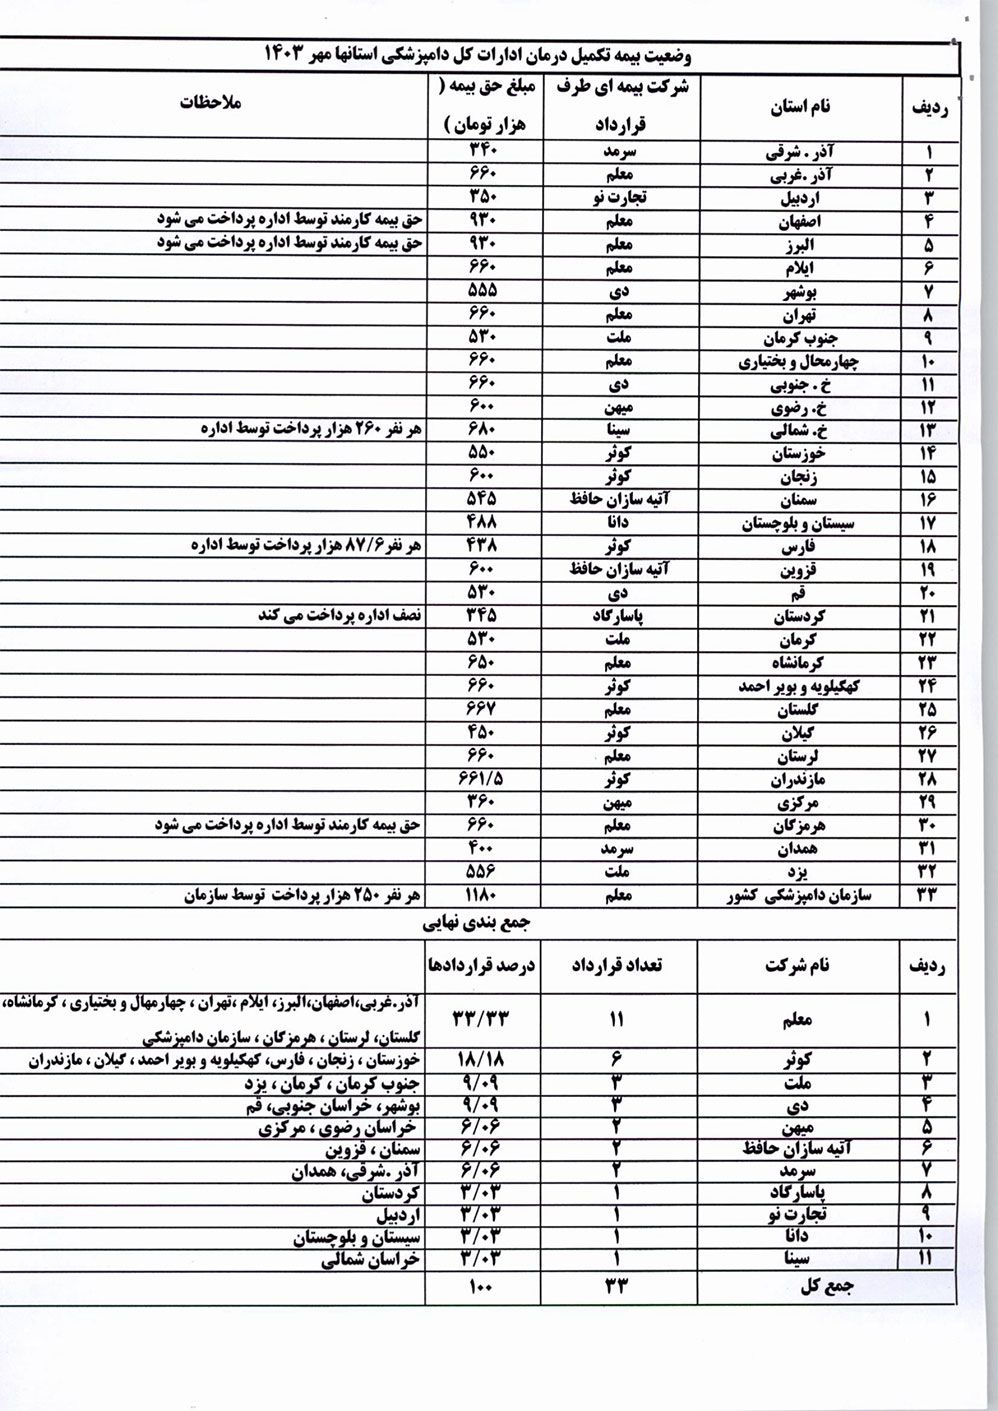 وضعیت بیمه تکمیل درمان ادارات کل دامپزشکی استانها مهر ۱۴۰۳
ردیف نام استان شرکت بیمه ای طرف قرارداد مبلغ حق بیمه ( هزار تومان ) ملاحظات
۱ آذر . شرقی سرمد ۳۴۰
۲ آذر .غربی معلم ۶۶۰
۳ اردبیل تجارت نو ۳۵۰
۴ اصفهان معلم ۹۳۰ حق بیمه کارمند توسط اداره پرداخت می شود
۵ البرز معلم ۹۳۰ حق بیمه کارمند توسط اداره پرداخت می شود
۶ ایلام معلم ۶۶۰
۷ بوشهر دی ۵۵۵
۸ تهران معلم ۶۶۰
۹ جنوب کرمان ملت ۵۳۰
۱۰ چهارمحال و بختیاری معلم ۶۶۰
۱۱ خ . جنوبی دی ۶۶۰
۱۲ خ. رضوی میهن ۶۰۰
۱۳ خ. شمالی سینا ۶۸۰ هر نفر ۲۶۰ هزار پرداخت توسط اداره
۱۴ خوزستان کوثر ۵۵۰
۱۵ زنجان کوثر ۶۰۰
۱۶ سمنان آتیه سازان حافظ ۵۴۵
۱۷ سیستان و بلوچستان دانا ۴۸۸
۱۸ فارس کوثر ۴۳۸ هر نفر ۸۷/۶ هزار پرداخت توسط اداره
۱۹ قزوین آتیه سازان حافظ ۶۰۰
۲۰ قم دی ۵۳۰
۲۱ کردستان پاسارگاد ۳۴۵ نصف اداره پرداخت می کند
۲۲ کرمان ملت ۵۳۰
۲۳ کرمانشاه معلم ۶۵۰
۲۴ کهکیلویه و بویر احمد کوثر ۶۶۰
۲۵ گلستان معلم ۶۶۷
۲۶ گیلان کوثر ۴۵۰
۲۷ لرستان معلم ۶۶۰
۲۸ مازندران کوثر ۶۶۱/۵
۲۹ مرکزی میهن ۳۶۰
۳۰ هرمزگان معلم ۶۶۰ حق بیمه کارمند توسط اداره پرداخت می شود
۳۱ همدان سرمد ۴۰۰
۳۲ یزد ملت ۵۵۶
۳۳ سازمان دامپزشکی کشور معلم ۱۱۸۰ هر نفر ۲۵۰ هزار پرداخت توسط سازمان
جمع بندی نهایی
ردیف نام شرکت تعداد قرارداد درصد قراردادها
۱ معلم ۱۱ ۳۳/۳۳ آذر.غربی،اصفهان،البرز، ایلام ،تهران ، چهارمهال و بختیاری ، کرمانشاه،
گلستان، لرستان ، هرمزگان ، سازمان دامپزشکی
۲ کوثر ۶ ۱۸/۱۸ خوزستان ، زنجان ، فارس، کهکیلویه و بویر احمد ، گیلان ، مازندران
۳ ملت ۳ ۹/۰۹ جنوب کرمان ، کرمان ، یزد
۴ دی ۳ ۹/۰۹ بوشهر، خراسان جنوبی، قم
۵ میهن ۲ ۶/۰۶ خراسان رضوی ، مرکزی
۶ آتیه سازان حافظ ۲ ۶/۰۶ سمنان ، قزوین
۷ سرمد ۲ ۶/۰۶ آذر .شرقی، همدان
۸ پاسارگاد ۱ ۳/۰۳ کردستان
۹ تجارت نو ۱ ۳/۰۳ اردبیل
۱۰ دانا ۱ ۳/۰۳ سیستان و بلوچستان
۱۱ سینا ۱ ۳/۰۳ خراسان شمالی
جمع کل ۳۳ ۱۰۰